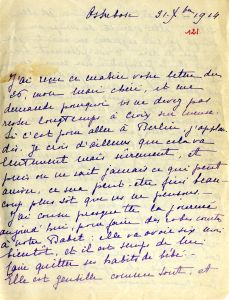 31. Xbre 1914
121
J'ai reçu ce matin votre lettre du
25, mon mari chéri, et me
demande pourquoi vs ne devez pas
rester longtemps à Croix sur Meuse.
Si c'est pour aller à Berlin j'applau
dis. Je crois d'ailleurs que cela va
lentement mais sûrement, et
puis on ne sait jamais ce qui peut
arriver, ce sera peut-être fini beau
coup plus tôt que vs ne pensons.
J'ai cousu presque tte la journée
aujourd'hui, pour faire des robes courtes
à votre Babet, elle va avoir six mois
bientôt, et il est temps de lui
faire quitter ses habits de bébé.
Elle est gentille comme tout, et